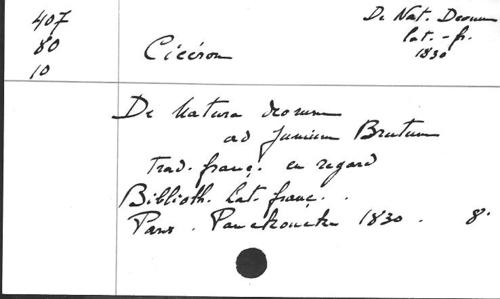 407
80
10
Cicéron
De Nat. Deorum
lat.-fr.
1830
De Natura deorum
ad Junium Brutum
trad. franç. en regard
Biblioth. lat. franç.
Paris. Panckoucke 1830. 8.